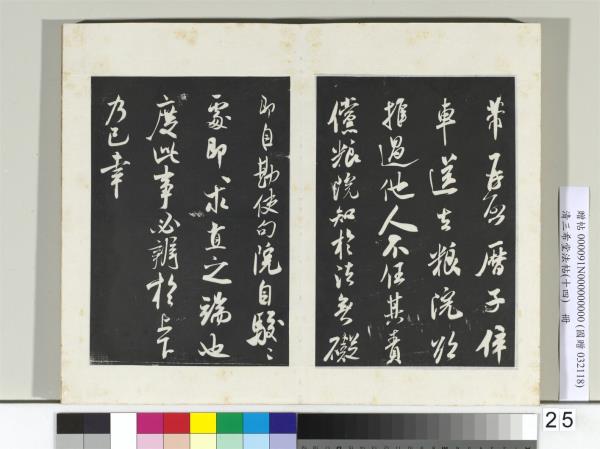 芾再啓曆子倅
車送去粮院欲
推過他人不任其責
儻粮院知於法無礙
即自勘使句院自駁〻
處即求直之端也
度此事必辨於上下
乃已幸
贈帖 000091N000000000 (國贈 032118)
清三希堂法帖(十四) 冊
25